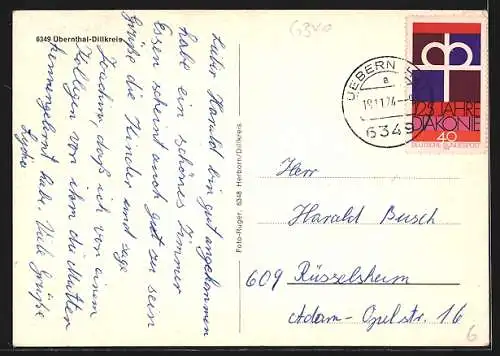 6349 Übernthal-Dillkreis
Lieber Harald bin gut angekommen
habe ein schönes Zimmer
Essen scheint auch gut zu sein
Grüße die Kinder und sage
Joachim, daß ich von einem
Kollegen von ihm die Mutter
kennengelernt habe. Viele Grüße
Lydia
Foto-Ruger, 6348 Herborn/Dillkreis
6340
UEBERN
a
19.11.74
6349
125 JAHRE
DIAKONIE
40
DEUTSCHE BUNDESPOST
Herr
Harald Busch
609 Rüsselsheim
Adam-Opelstr. 16
6